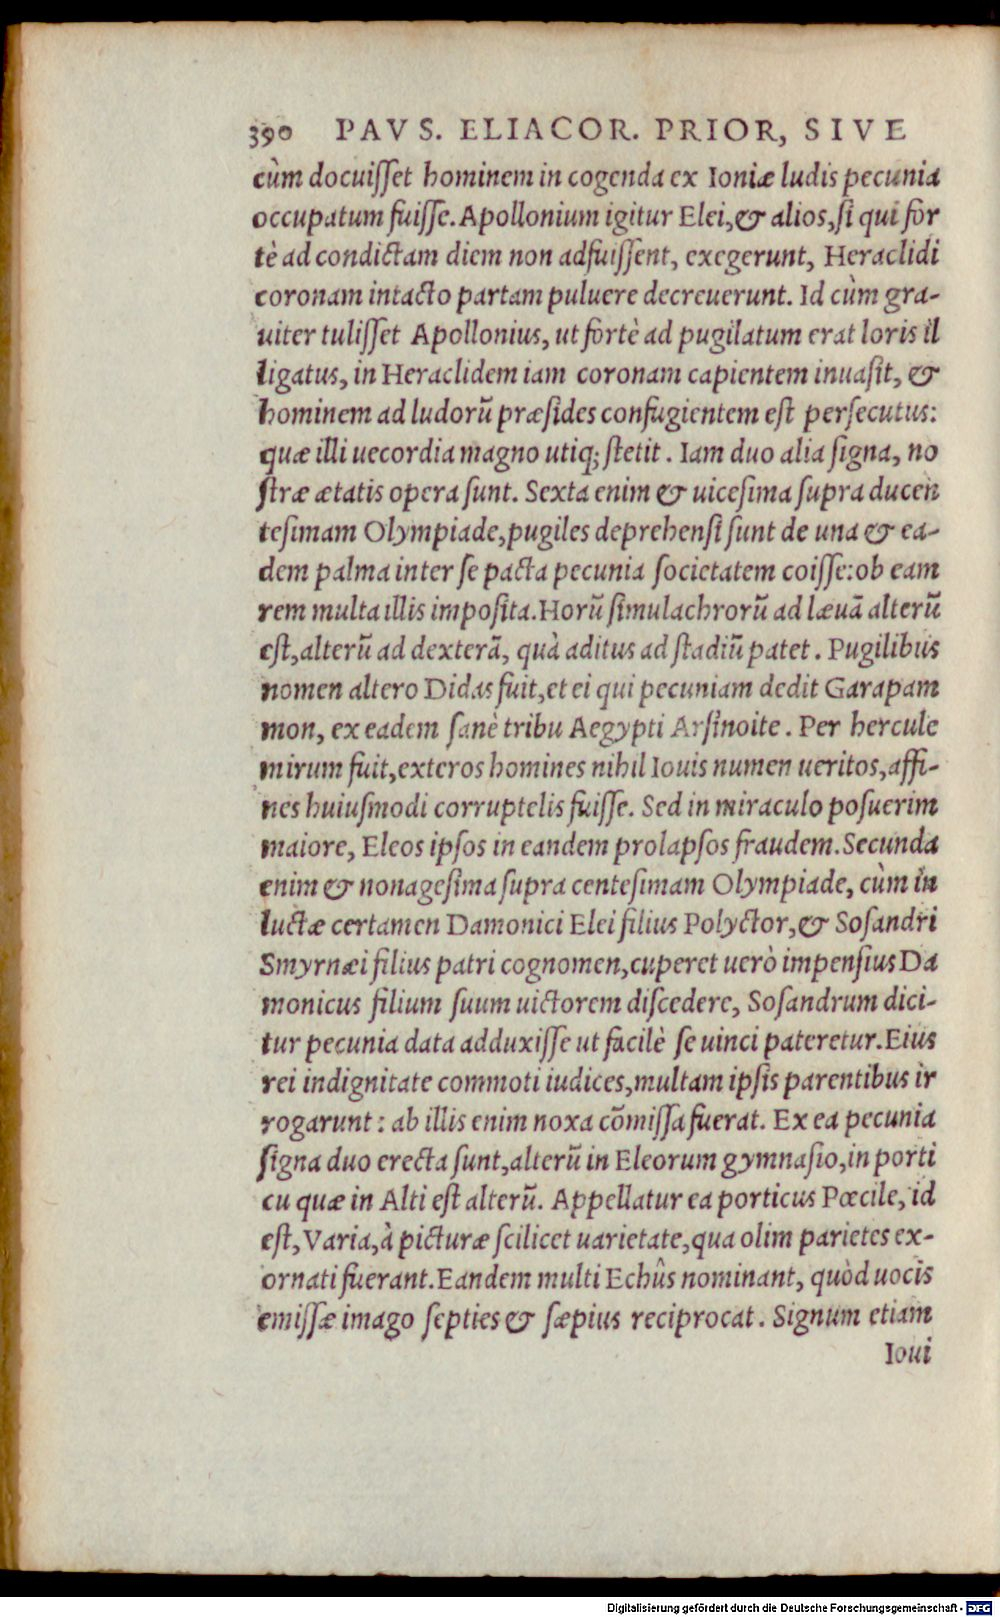 390 PAVS. ELIACOR. PRIOR, SIVE
cùm docuisset hominem in cogenda ex Ioniæ ludis pecunia
occupatum fuisse. Apollonium igitur Elei, & alios, si qui for
tè ad condictam diem non adfuissent, exegerunt, Heraclidi
coronam intacto partam puluere decreuerunt. Id cùm gra-
uiter tulisset Apollonius, ut fortè ad pugilatum erat loris il
ligatus, in Heraclidem iam coronam capientem inuasit, &
hominem ad ludorũ præsides confugientem est persecutus:
quæ illi uecordia magno utiq; stetit. Iam duo alia signa, no
stræ ætatis opera sunt. Sexta enim & uicesima supra ducen
tesimam Olympiade, pugiles deprehensi sunt de una & ea-
dem palma inter se pacta pecunia societatem coisse: ob eam
rem multa illis imposita. Horũ simulachrorũ ad læuã alterũ
est, alterũ ad dexterã, quà aditus ad stadiũ patet. Pugilibus
nomen altero Didas fuit, et ei qui pecuniam dedit Garapam
mon, ex eadem sanè tribu Aegypti Arsinoite. Per hercule
mirum fuit, exteros homines nihil Iouis numen ueritos, affi-
nes huiusmodi corruptelis fuisse. Sed in miraculo posuerim
maiore, Eleos ipsos in eandem prolapsos fraudem. Secunda
enim & nonagesima supra centesimam Olympiade, cùm in
luctæ certamen Damonici Elei filius Polyctor, & Sosandri
Smyrnæi filius patri cognomen, cuperet uerò impensius Da
monicus filium suum uictorem discedere, Sosandrum dici-
tur pecunia data adduxisse ut facilè se uinci pateretur. Eius
rei indignitate commoti iudices, multam ipsis parentibus ir
rogarunt: ab illis enim noxa cõmissa fuerat. Ex ea pecunia
signa duo erecta sunt, alterũ in Eleorum gymnasio, in porti
cu quæ in Alti est alterũ. Appellatur ea porticus Pœcile, id
est, Varia, à picturæ scilicet uarietate, qua olim parietes ex-
ornati fuerant. Eandem multi Echûs nominant, quòd uocis
emissæ imago septies & sæpius reciprocat. Signum etiam
Ioui
Digitalisierung gefördert durch die Deutsche Forschungsgemeinschaft - DFG